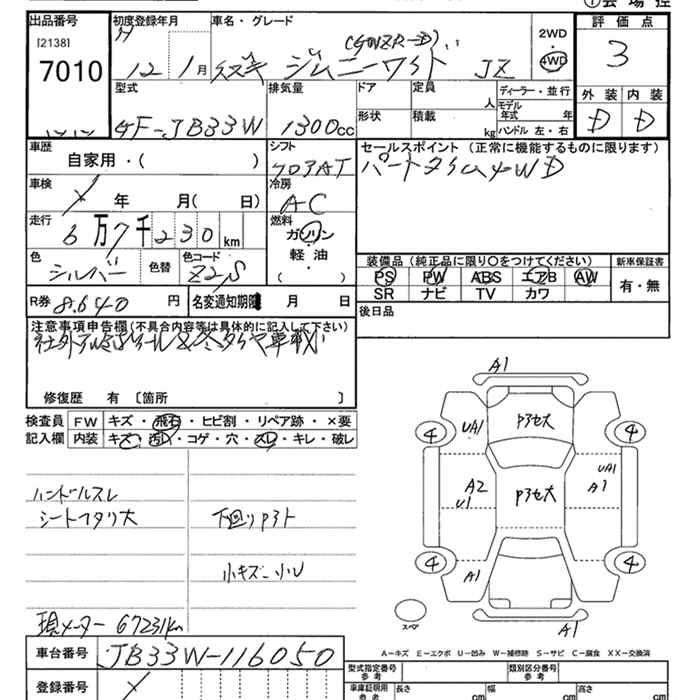 出品番号 初度登録年月 車名・グレード 2WD 4WD 評価点
[2138]
7010
H 12年 1月 ジムニーワイド JZ
3
型式 排気量 ドア 定員 人 ディーラー・並行 外装 内装
形状 積載 kg モデル年式 年 ハンドル 左・右
GF-JB33W 1300cc D D
車歴 自家用・( ) シフト フロアAT
セールスポイント (正常に機能するものに限ります)
パートタイム4WD
車検 年 月( 日) 冷房 AC
走行 6万7千230km 燃料 ガソリン・軽油・( )
色 シルバー 色替 色コード Z2S
装備品 (純正品に限り○をつけてください) 新車保証書
PS PW ABS エアB AW 有・無
SR ナビ TV カワ
R券 8,640円 名変通知期限 月 日 後日品
注意事項申告欄(不具合内容等は具体的に記入して下さい)
修復歴 有 〔箇所 〕
検査員記入欄 FW キズ・飛石・ヒビ割・リペア跡・×要
内装 キズ・汚レ・コゲ・穴・スレ・キレ・破レ
ハンドルスレ
シートヘタリ大 下回りサビ
小キズ 小U
現メーター 67231km
車台番号 JB33W-116050
登録番号
A1
UA1 4 4
A2
U1 UA1
A1
4 A1 4
スペア A1
A-キズ E-エクボ U-凹み W-補修跡 S-サビ C-腐食 XX-交換済
型式指定番号 参考 類別区分番号 参考
車庫証明用 参考 長さ cm 幅 cm 高さ cm